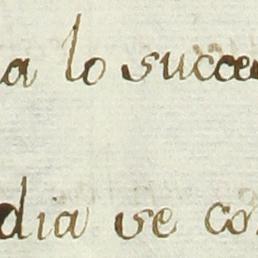 a lo succe
dia se co